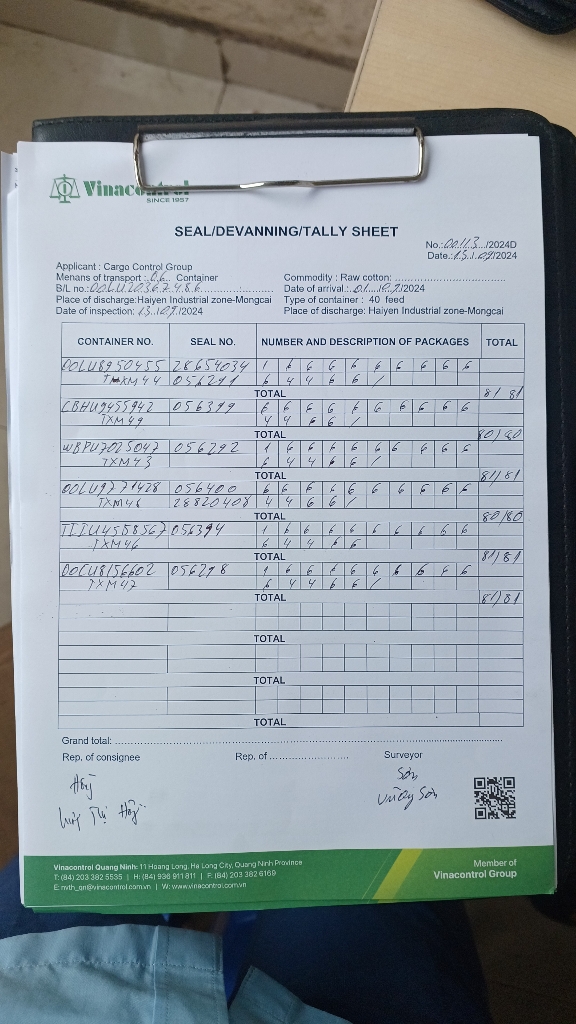 Vinacontrol
SINCE 1957
SEAL/DEVANNING/TALLY SHEET
No.:00113.../2024D
Date.:.15./.09/2024
Applicant : Cargo Control Group
Menans of transport :.06.. Container
Commodity : Raw cotton: ...........................
B/L no.:OOLU2036.7.4.86
Date of arrival.:.01..../0.9/2024
Place of discharge:Haiyen Industrial zone-Mongcai
Type of container : 40 feed
Date of inspection: 13./09./2024
Place of discharge: Haiyen Industrial zone-Mongcai
CONTAINER NO. SEAL NO. NUMBER AND DESCRIPTION OF PACKAGES TOTAL
OOLU8950455 28654034 1 6 6 6 6 6 6 6 6 6
TXM44 6 4 4 6 6 /
TOTAL 81/81
056399 6 6 6 6 6 6 6 6 6 6
TXM49 4 4 6 6 /
TOTAL
056292 1 6 6 6 6 6 6 6 6 6
TXM43 6 4 4 6 6 /
TOTAL 81/81
OOLU9771428 056400 6 6 6 6 6 6 6 6 6 6
28820408 4 4 6 6 /
TOTAL 80/80
056394 1 6 6 6 6 6 6 6 6 6
TXM46 6 4 4 6 6
TOTAL 81/81
056298 1 6 6 6 6 6 6 6 6 6
TXM47 6 4 4 6 6 /
TOTAL 81/81
TOTAL
TOTAL
TOTAL
Grand total: ...........................
Rep. of consignee Rep. of ..................... Surveyor
Sơn
Vương Sơn
Vinacontrol Quang Ninh: 11 Hoang Long, Ha Long City, Quang Ninh Province
T: (84) 203 382 5535 | H: (84) 936 911 811 | F: (84) 203 382 6169
E: nvth_qn@vinacontrol.com.vn | W: www.vinacontrol.com.vn
Member of
Vinacontrol Group